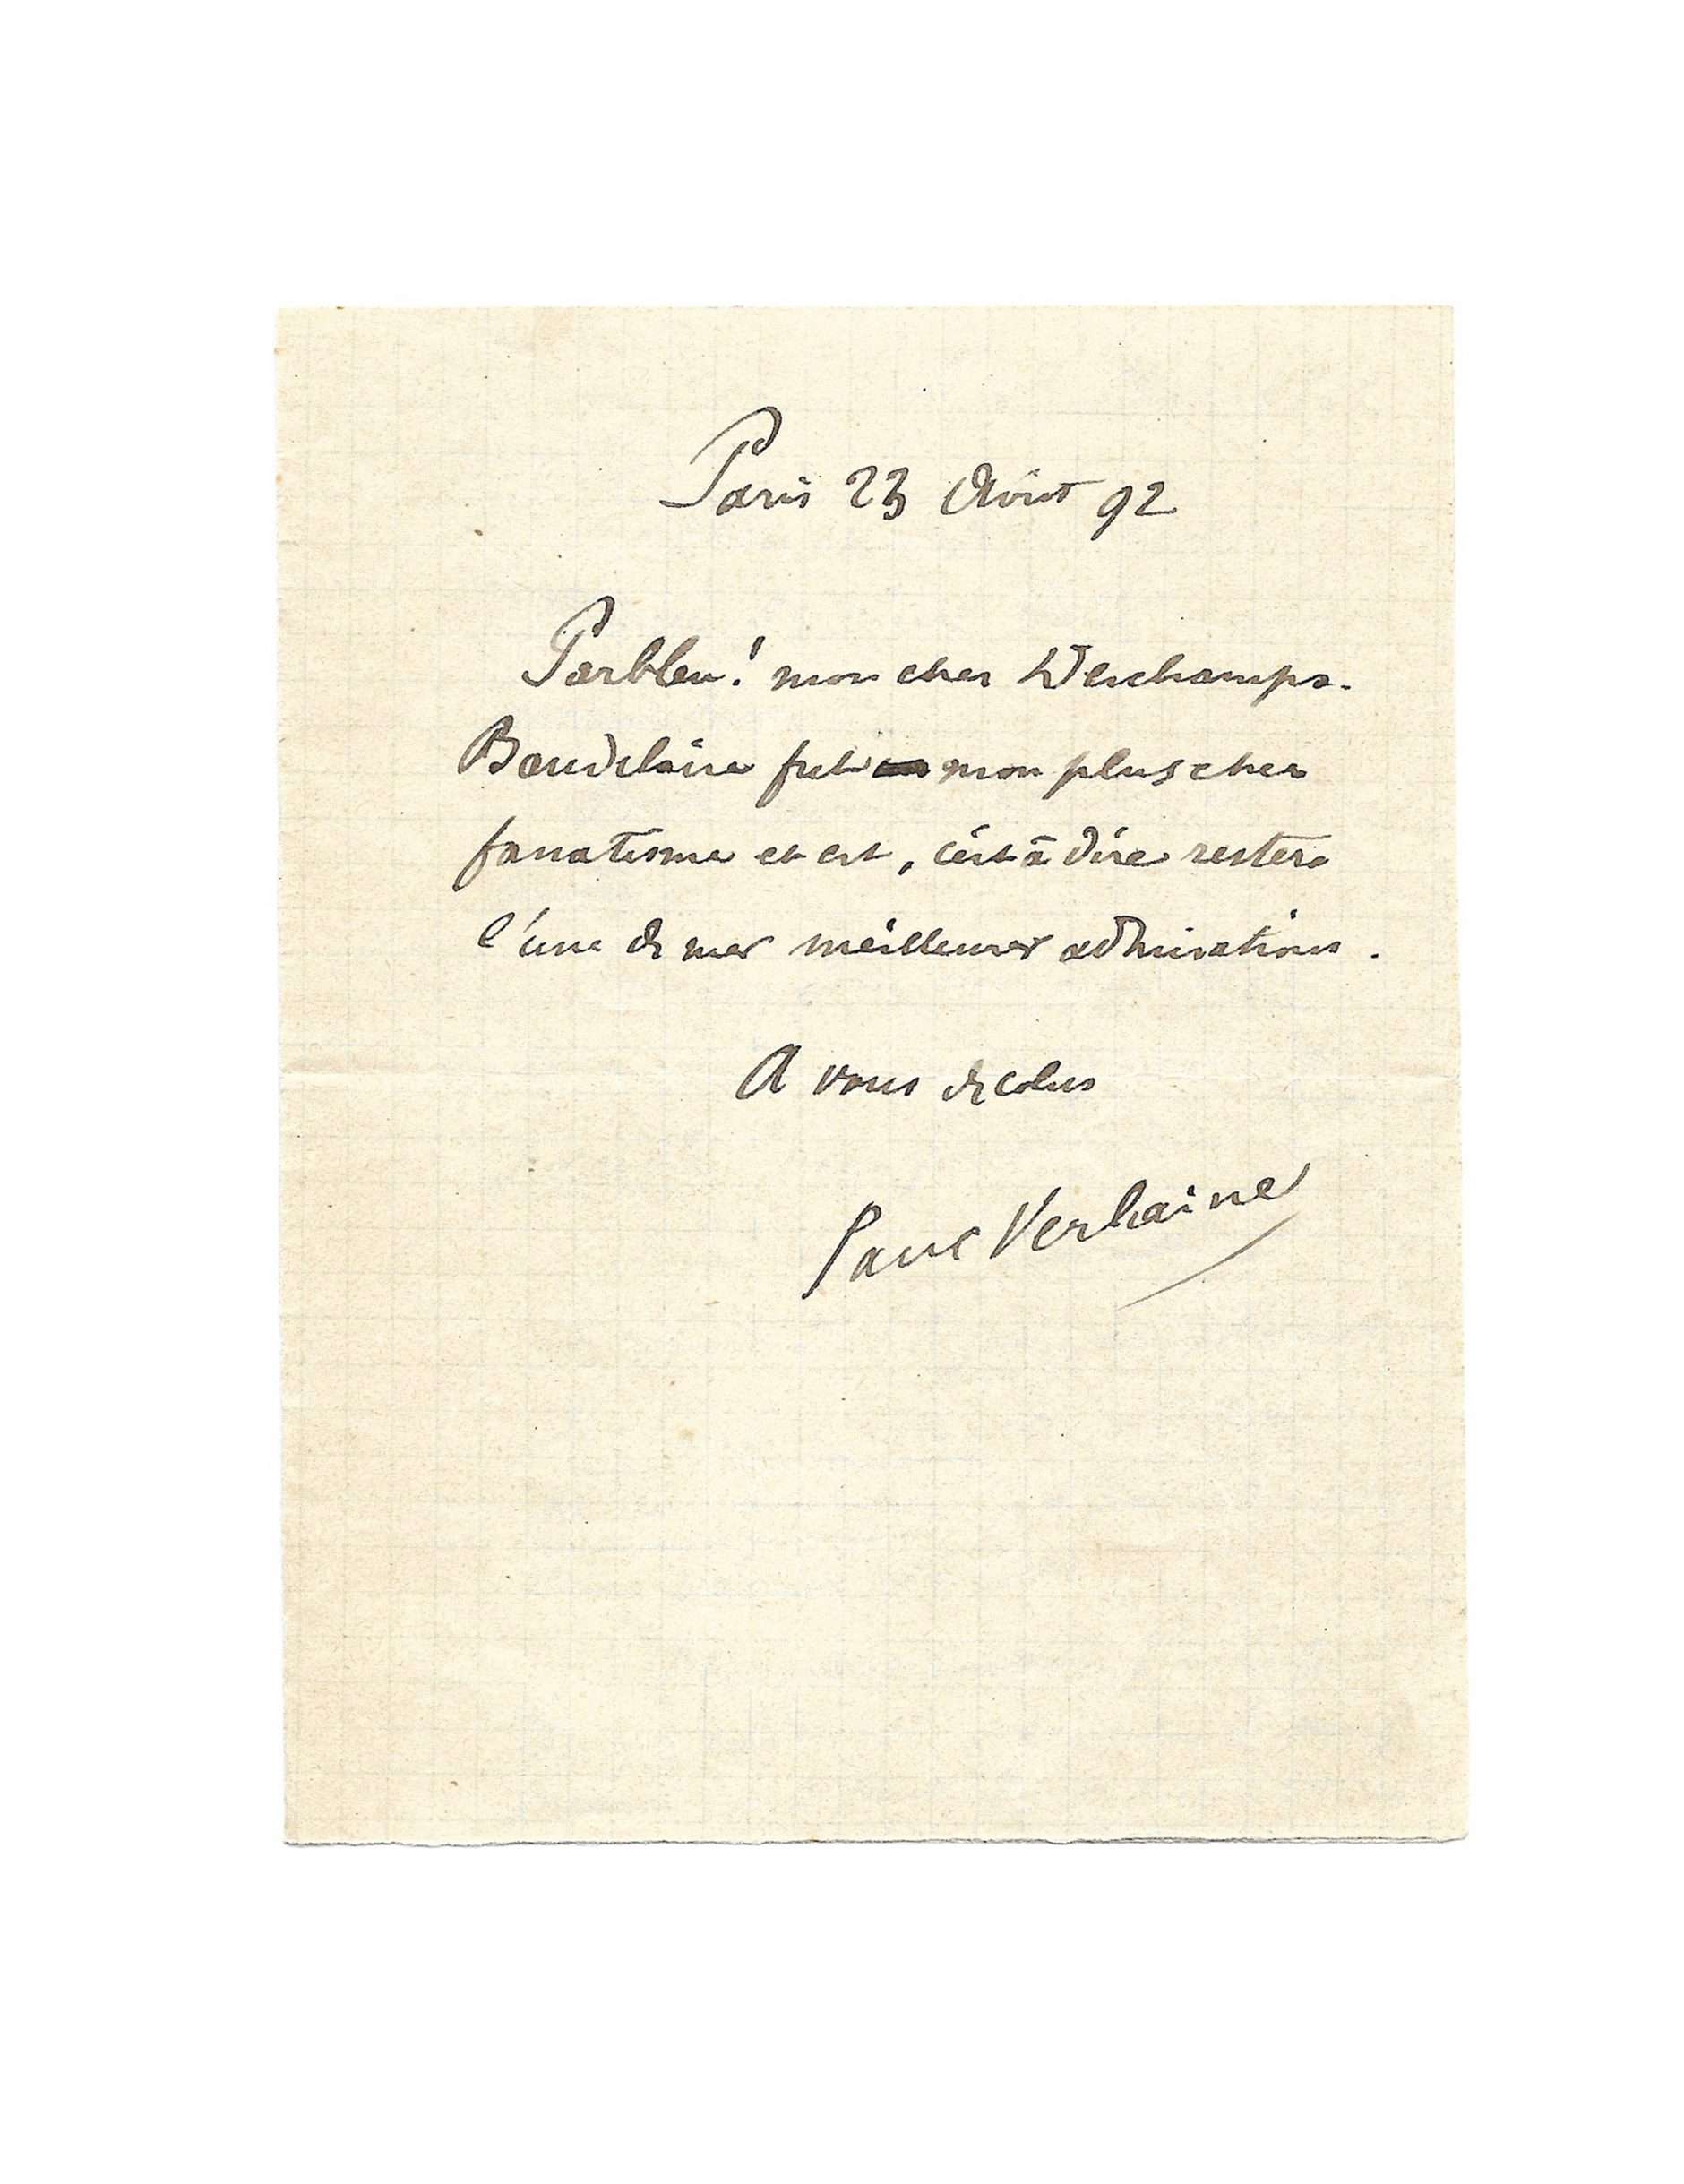 Paris 23 Août 92
Parbleu! mon cher Deschamps.
Baudelaire fut mon plus cher
fanatisme et est, c'est à dire restera
l'une de mes meilleures admirations.
A vous de cœur
Paul Verlaine